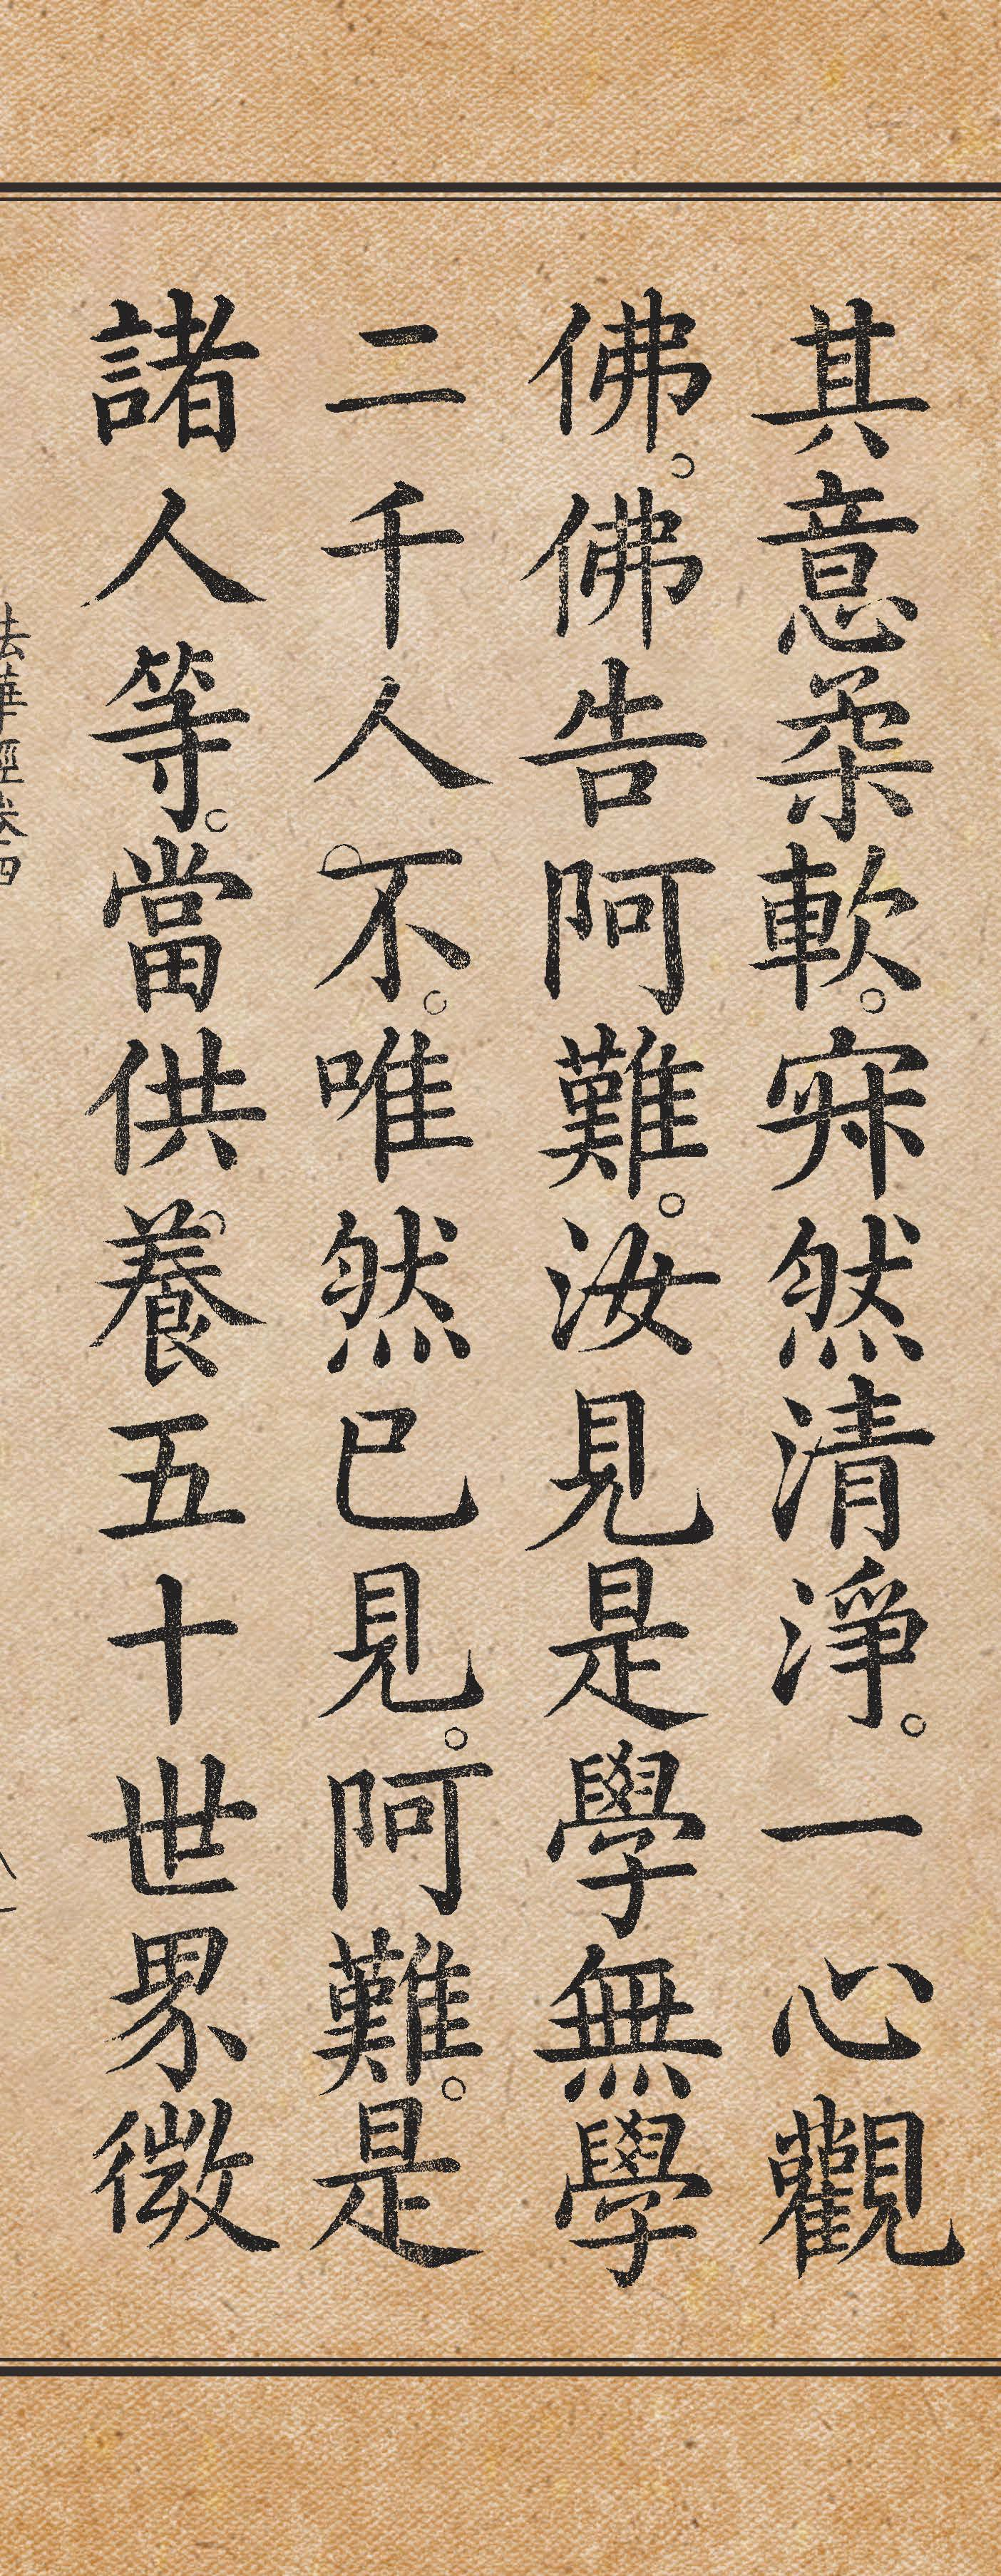 其意柔軟。寂然清淨。一心觀
佛。佛告阿難。汝見是學無學
二千人不。唯然已見。阿難。是
諸人等。當供養五十世界微
法華經卷四